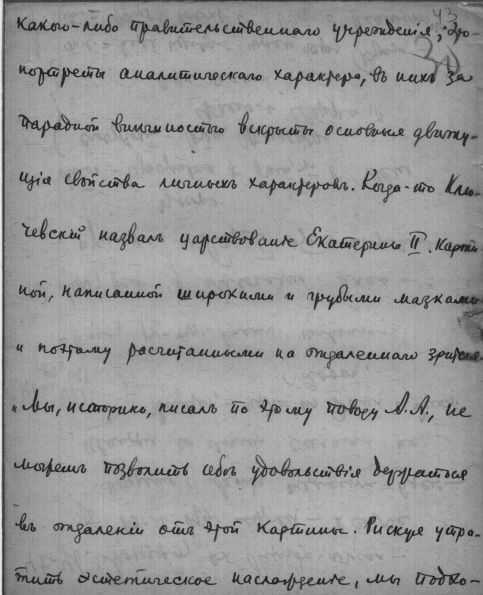 43
30
какого-либо правительственнаго учрежденія, это
портреты аналитическаго характера, въ нихъ за
парадной внѣшностью вскрыты основныя движу-
щія свойства личныхъ характеровъ. Когда-то Клю-
чевскій назвалъ царствованіе Екатерины II "карти-
ной, написанной широкими и грубыми мазками
и поэтому расчитанными на отдаленнаго зрителя.
"Мы, историки, писалъ по этому поводу А.А., не
можемъ позволить себѣ удовольствія держаться
въ отдаленіи отъ этой картины. Рискуя утра-
тить эстетическое наслажденіе, мы подхо-